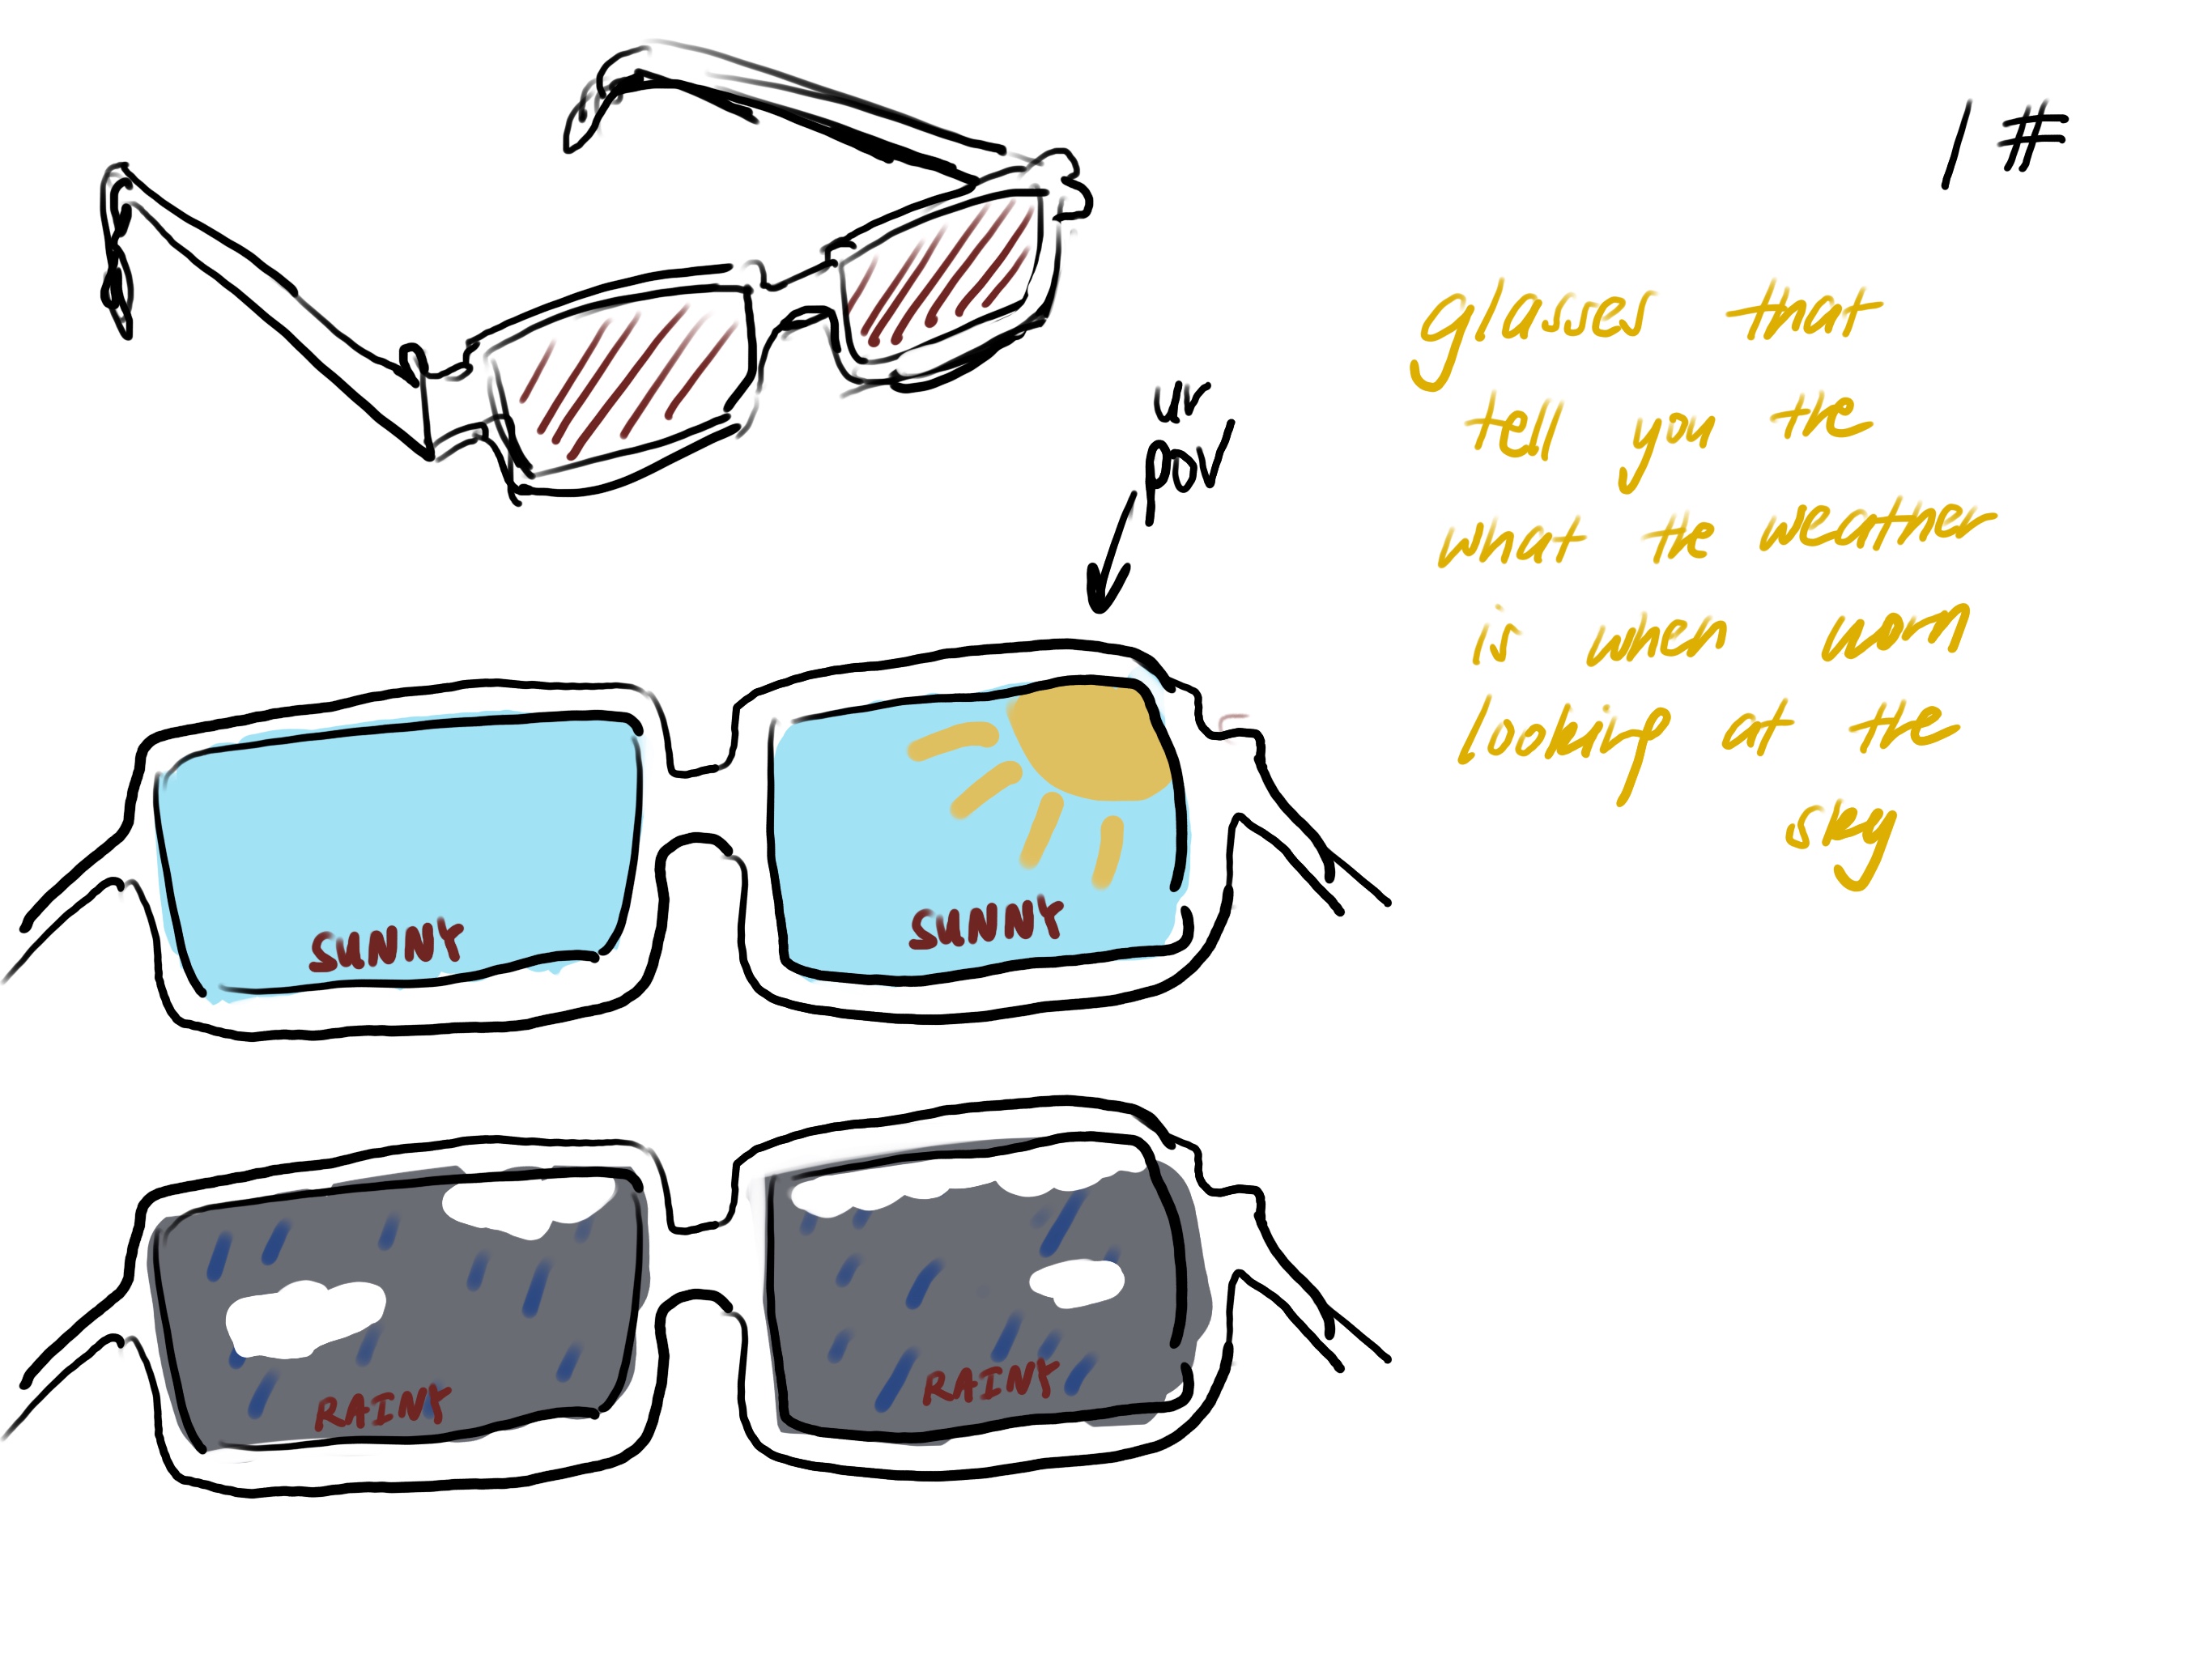 1 #
glasses that
tell you the
what the weather
is when worn
looking at the
sky
ur
pov
SUNNY SUNNY
RAINY RAINY